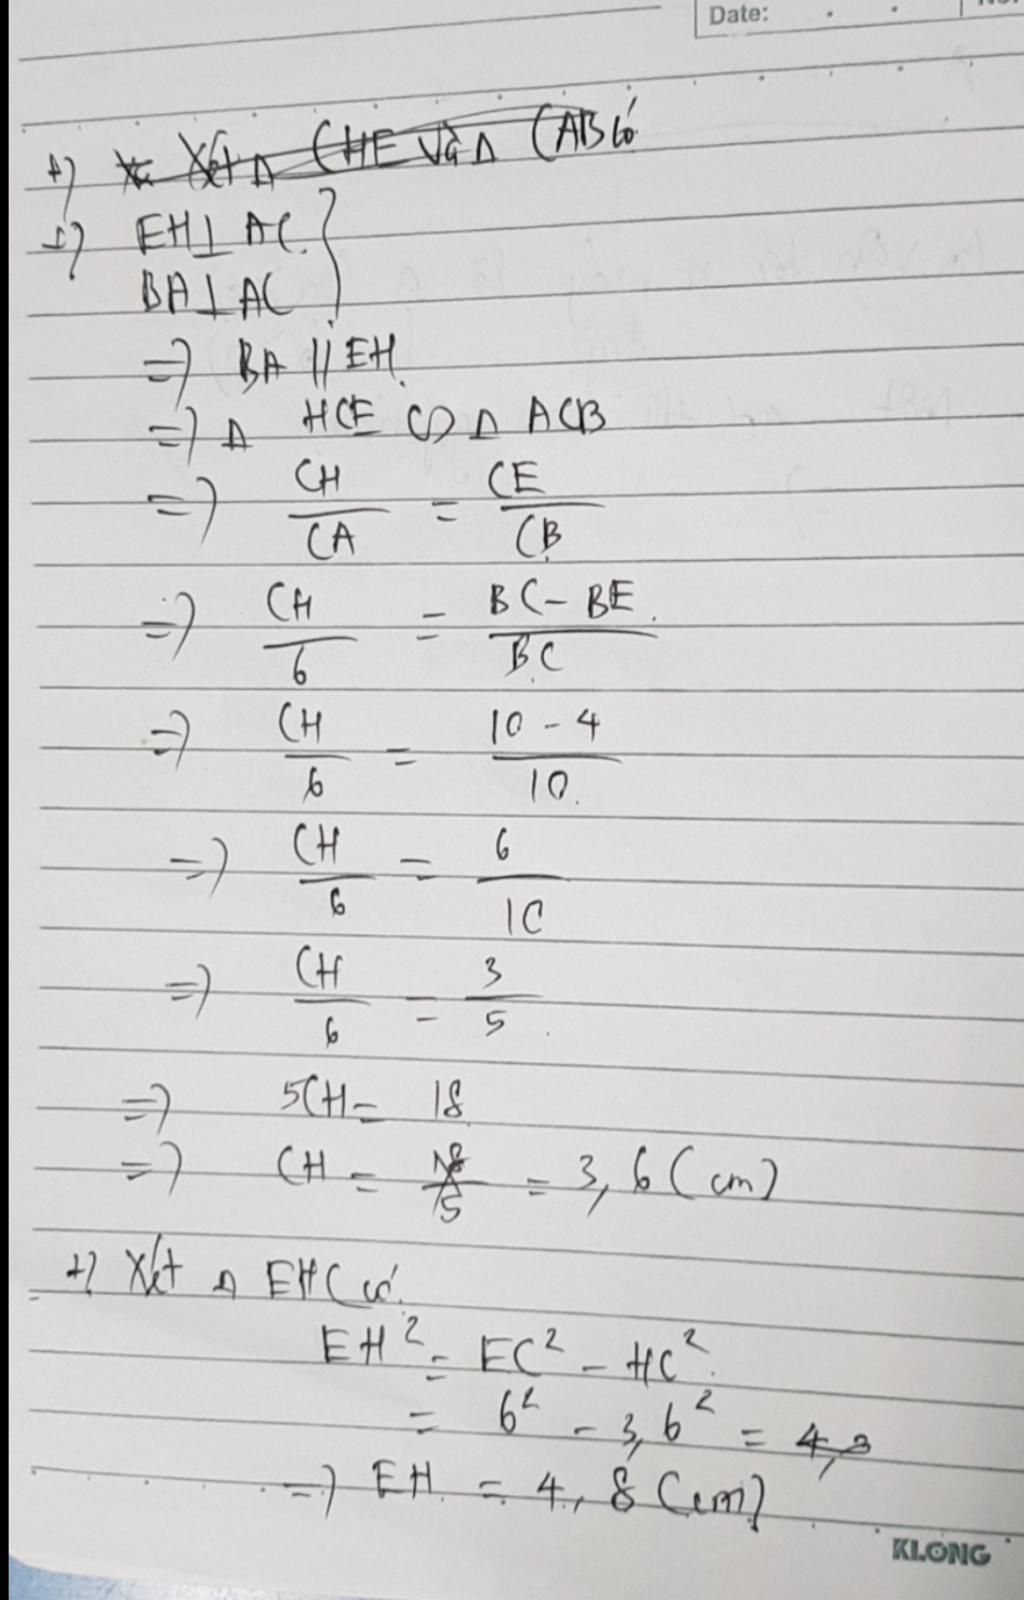 Date:
+) Xét Δ CHE và Δ CAB có
+) EH⊥ AC.
BA⊥AC }
=> BA // EH.
=> Δ HCE ∽ Δ ACB
=> CH/CA = CE/CB
=> CH/6 = BC - BE/BC
=> CH/6 = 10 - 4/10.
=> CH/6 = 6/10
=> CH/6 = 3/5
=> 5CH = 18
=> CH = 18/5 = 3,6 (cm)
+) Xét Δ EHC có.
EH² = EC² - HC².
= 6² - 3,6² = 4,8
=> EH = 4,8 (cm)
KLONG